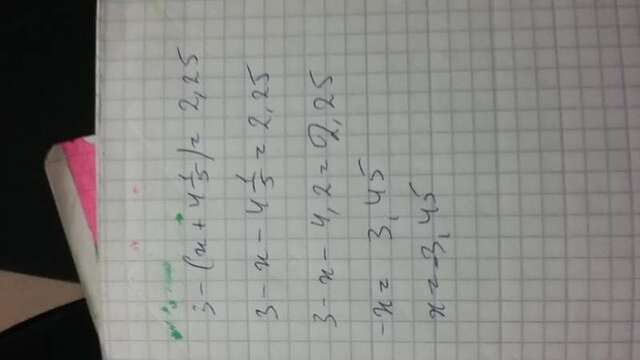 3 - (x + 4 1/5) = 2,25
3 - x - 4 1/5 = 2,25
3 - x - 4,2 = 2,25
-x = 3,45
x = -3,45